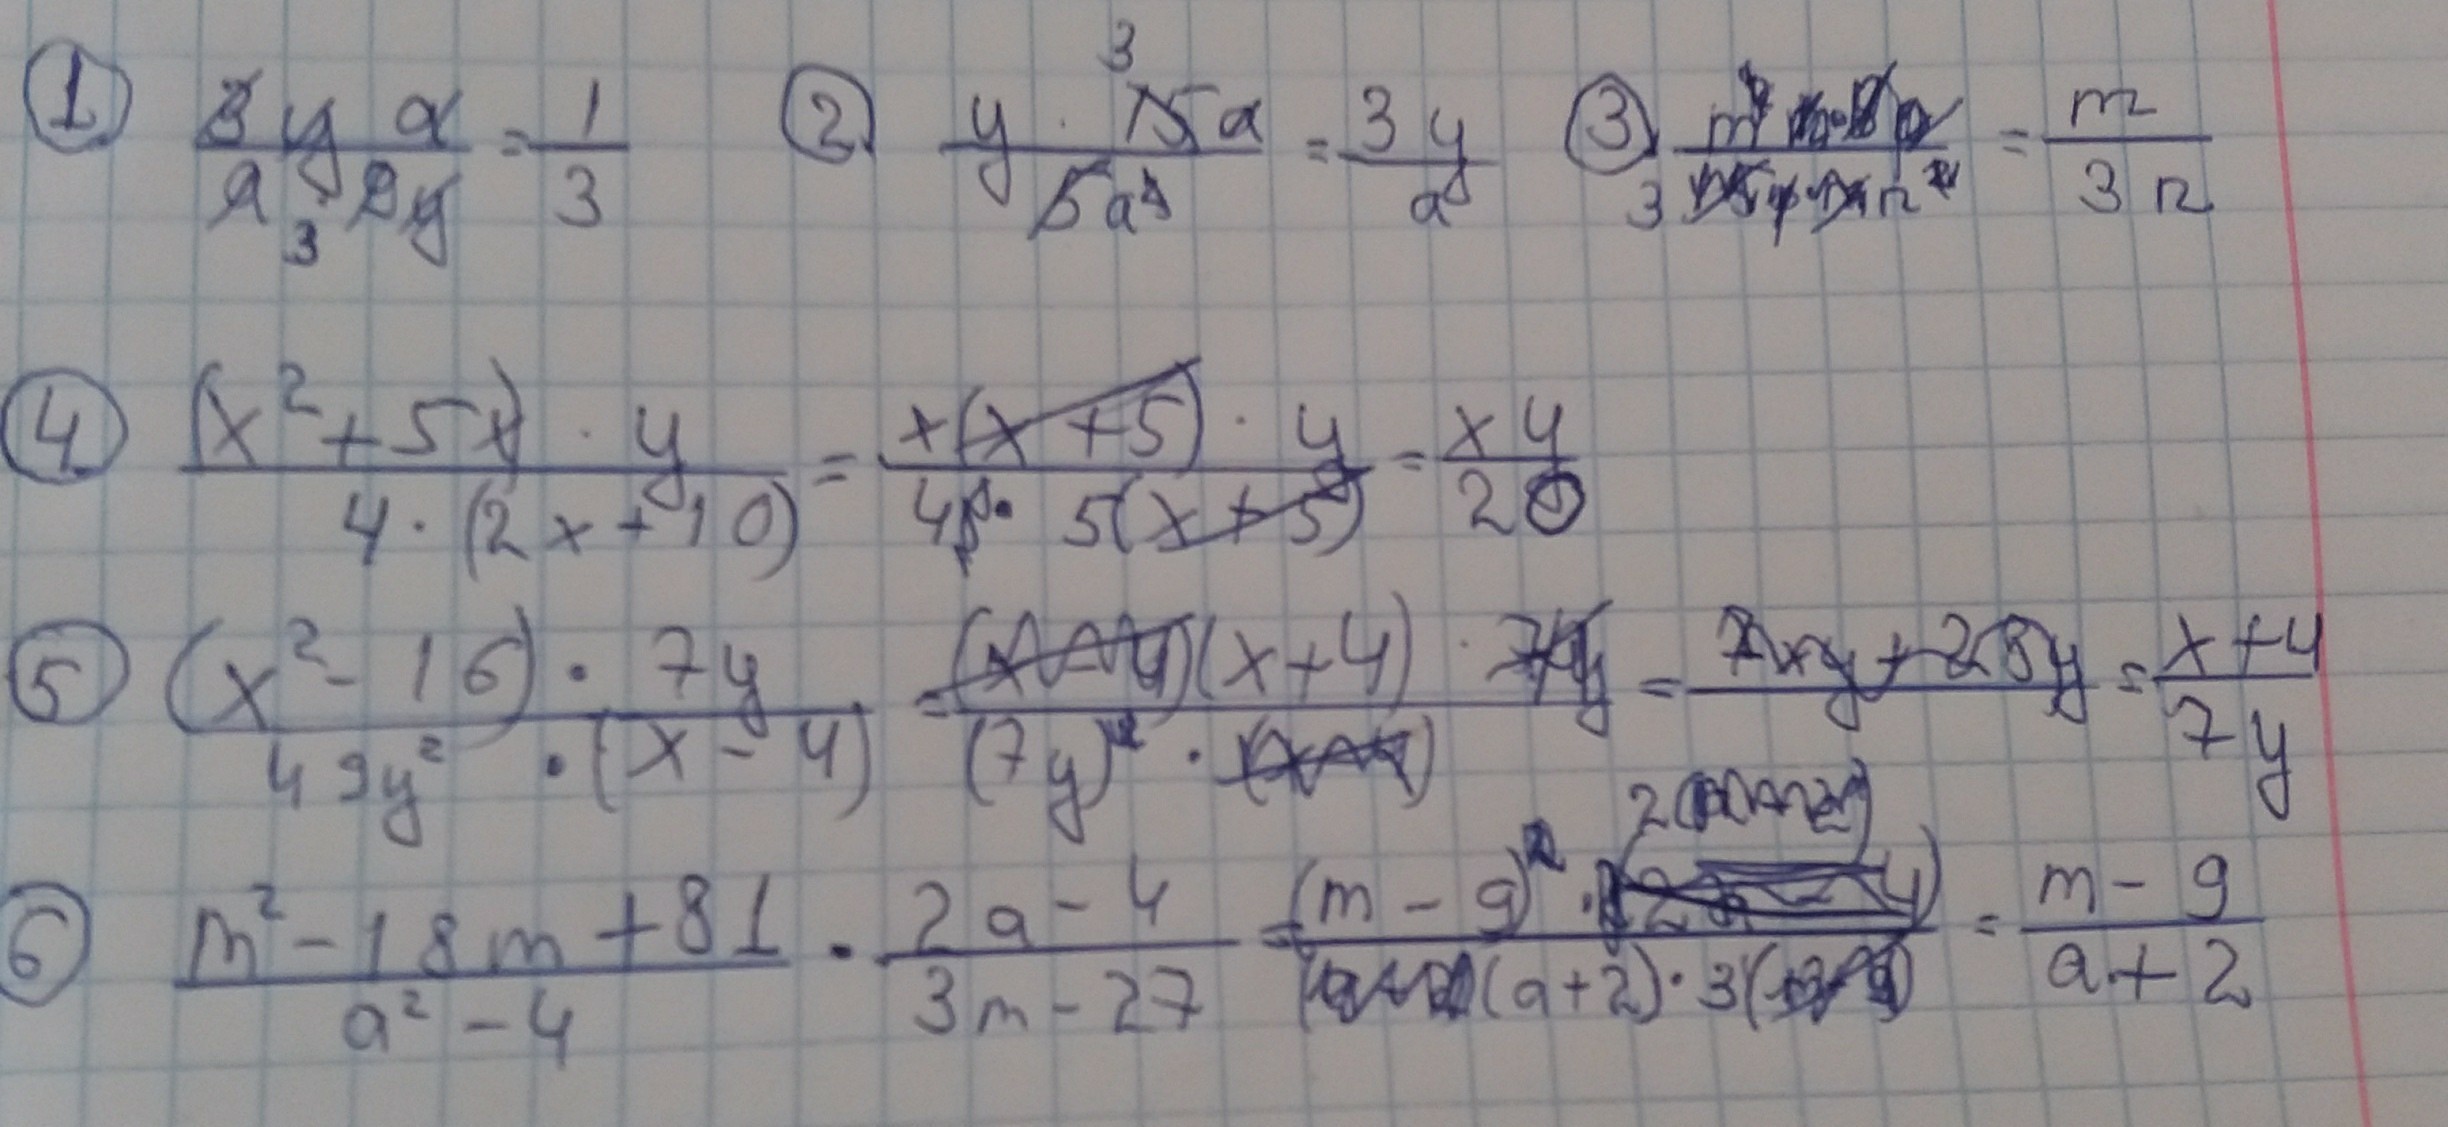 ① 3 y a / a 3 9 y = 1/3 ② y · 15a / 5a⁴ = 3y / a³ ③ = m / 3n
④ (x² + 5x) · y / 4 · (2x + 10) = x(x + 5) · y / 4 · 5(x + 5) = xy / 20
⑤ (x² - 16) · 7y / 49y² · (x - 4) = (x - 4)(x + 4) · 7y / (7y)² · (x - 4) = 7xy + 28y = x + 4 / 7y
⑥ m² - 18m + 81 / a² - 4 · 2a - 4 / 3m - 27 = (m - 9)² · (2a - 4) / (a + 2) · 3 = m - 9 / a + 2